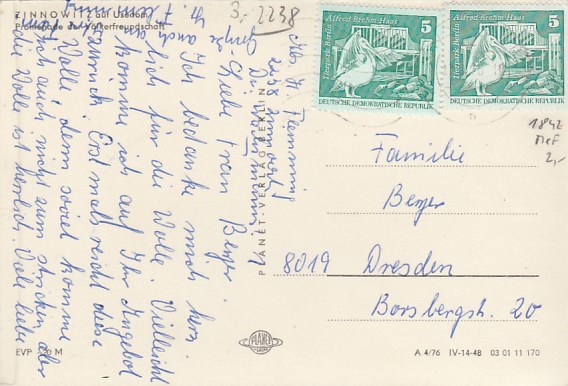 ZINNOWITZ auf Usedom
Promenade der Völkerfreundschaft
3,- 2238
Liebe Frau Berger.
Ich bedanke mich herz-
lich für die Wolle. Vielleicht
komme ich auf Ihr Angebot
zurück. Erst mal reicht diese
Wolle, denn soviel komme
ich auch nicht zum stricken aber
die Wolle ist herrlich. Viele liebe
H. Flemming
2238
PLANET-VERLAG BERLIN
Alfred-Brehm-Haus
Tierpark Berlin
5
DEUTSCHE DEMOKRATISCHE REPUBLIK
Alfred-Brehm-Haus
Tierpark Berlin
5
DEUTSCHE DEMOKRATISCHE REPUBLIK
1842
MeF
2,-
Familie
Berger
8019 Dresden
Borsbergstr. 20
EVP 0,20 M
PLANET
A 4/76 IV-14-48 03 01 11 170